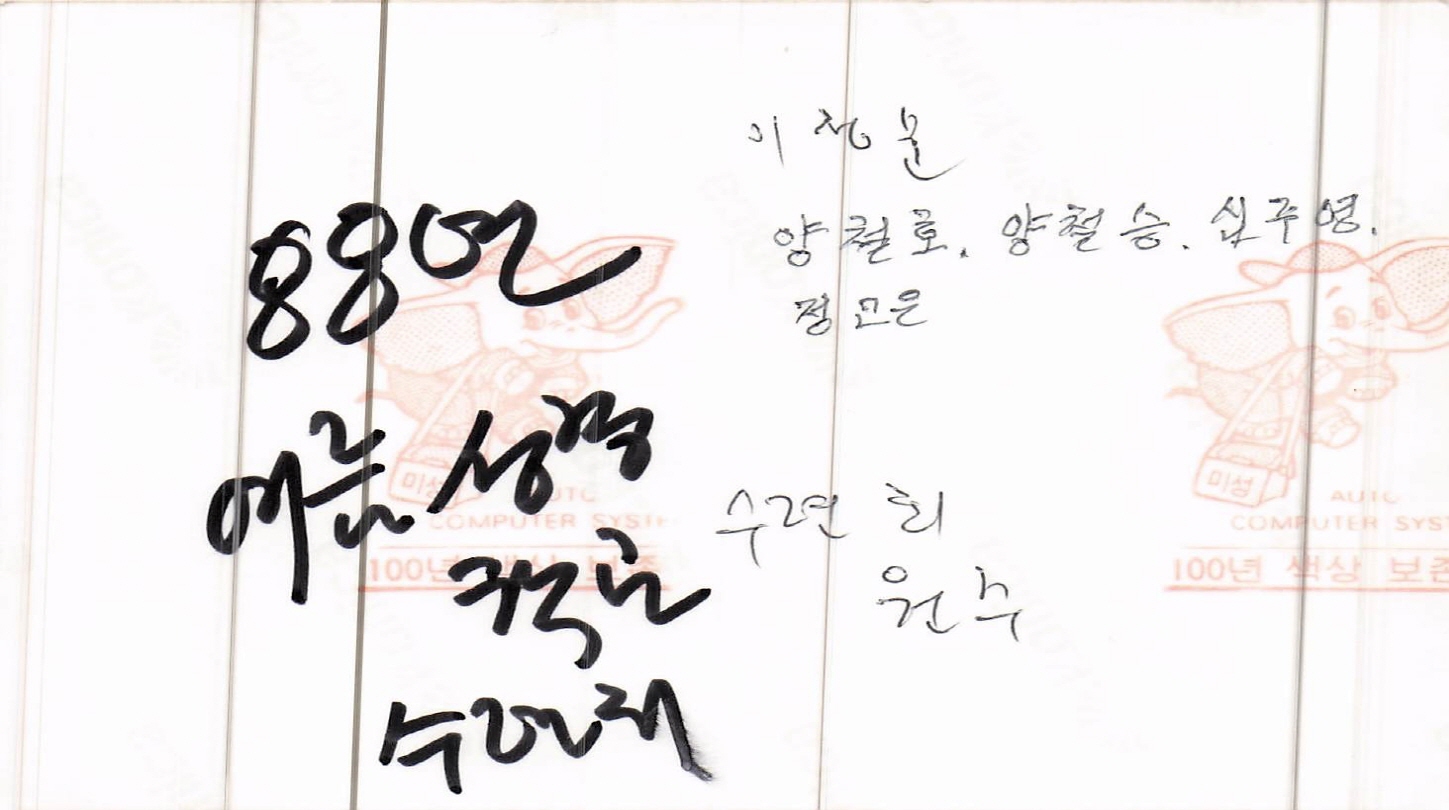 88년
여름 성경
학교
수련회
이청훈
양철호. 양철승. 심주영.
정고은
수련회
원수
미성
AUTO
COMPUTER SYSTE
100년 색상 보존
미성
AUTO
COMPUTER SYS
100년 색상 보존